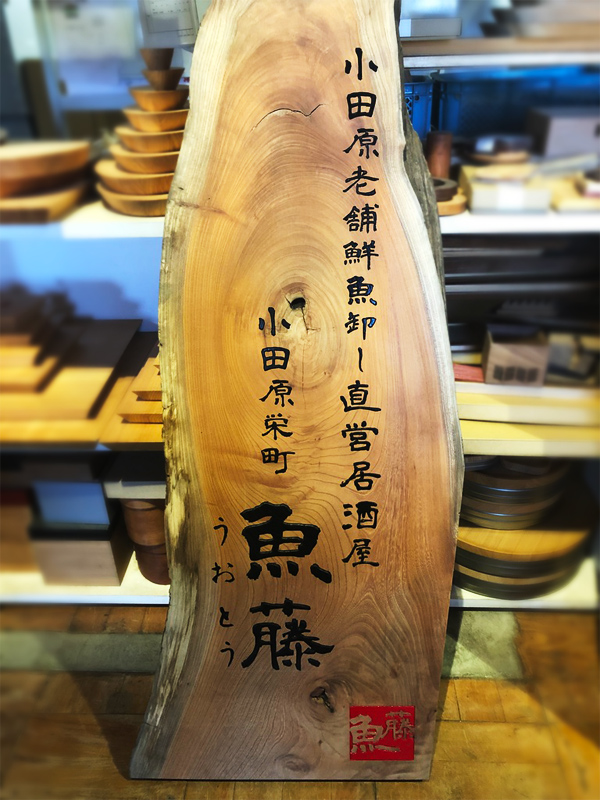 小田原老舗鮮魚卸し直営居酒屋
小田原栄町
魚藤
うおとう
魚藤